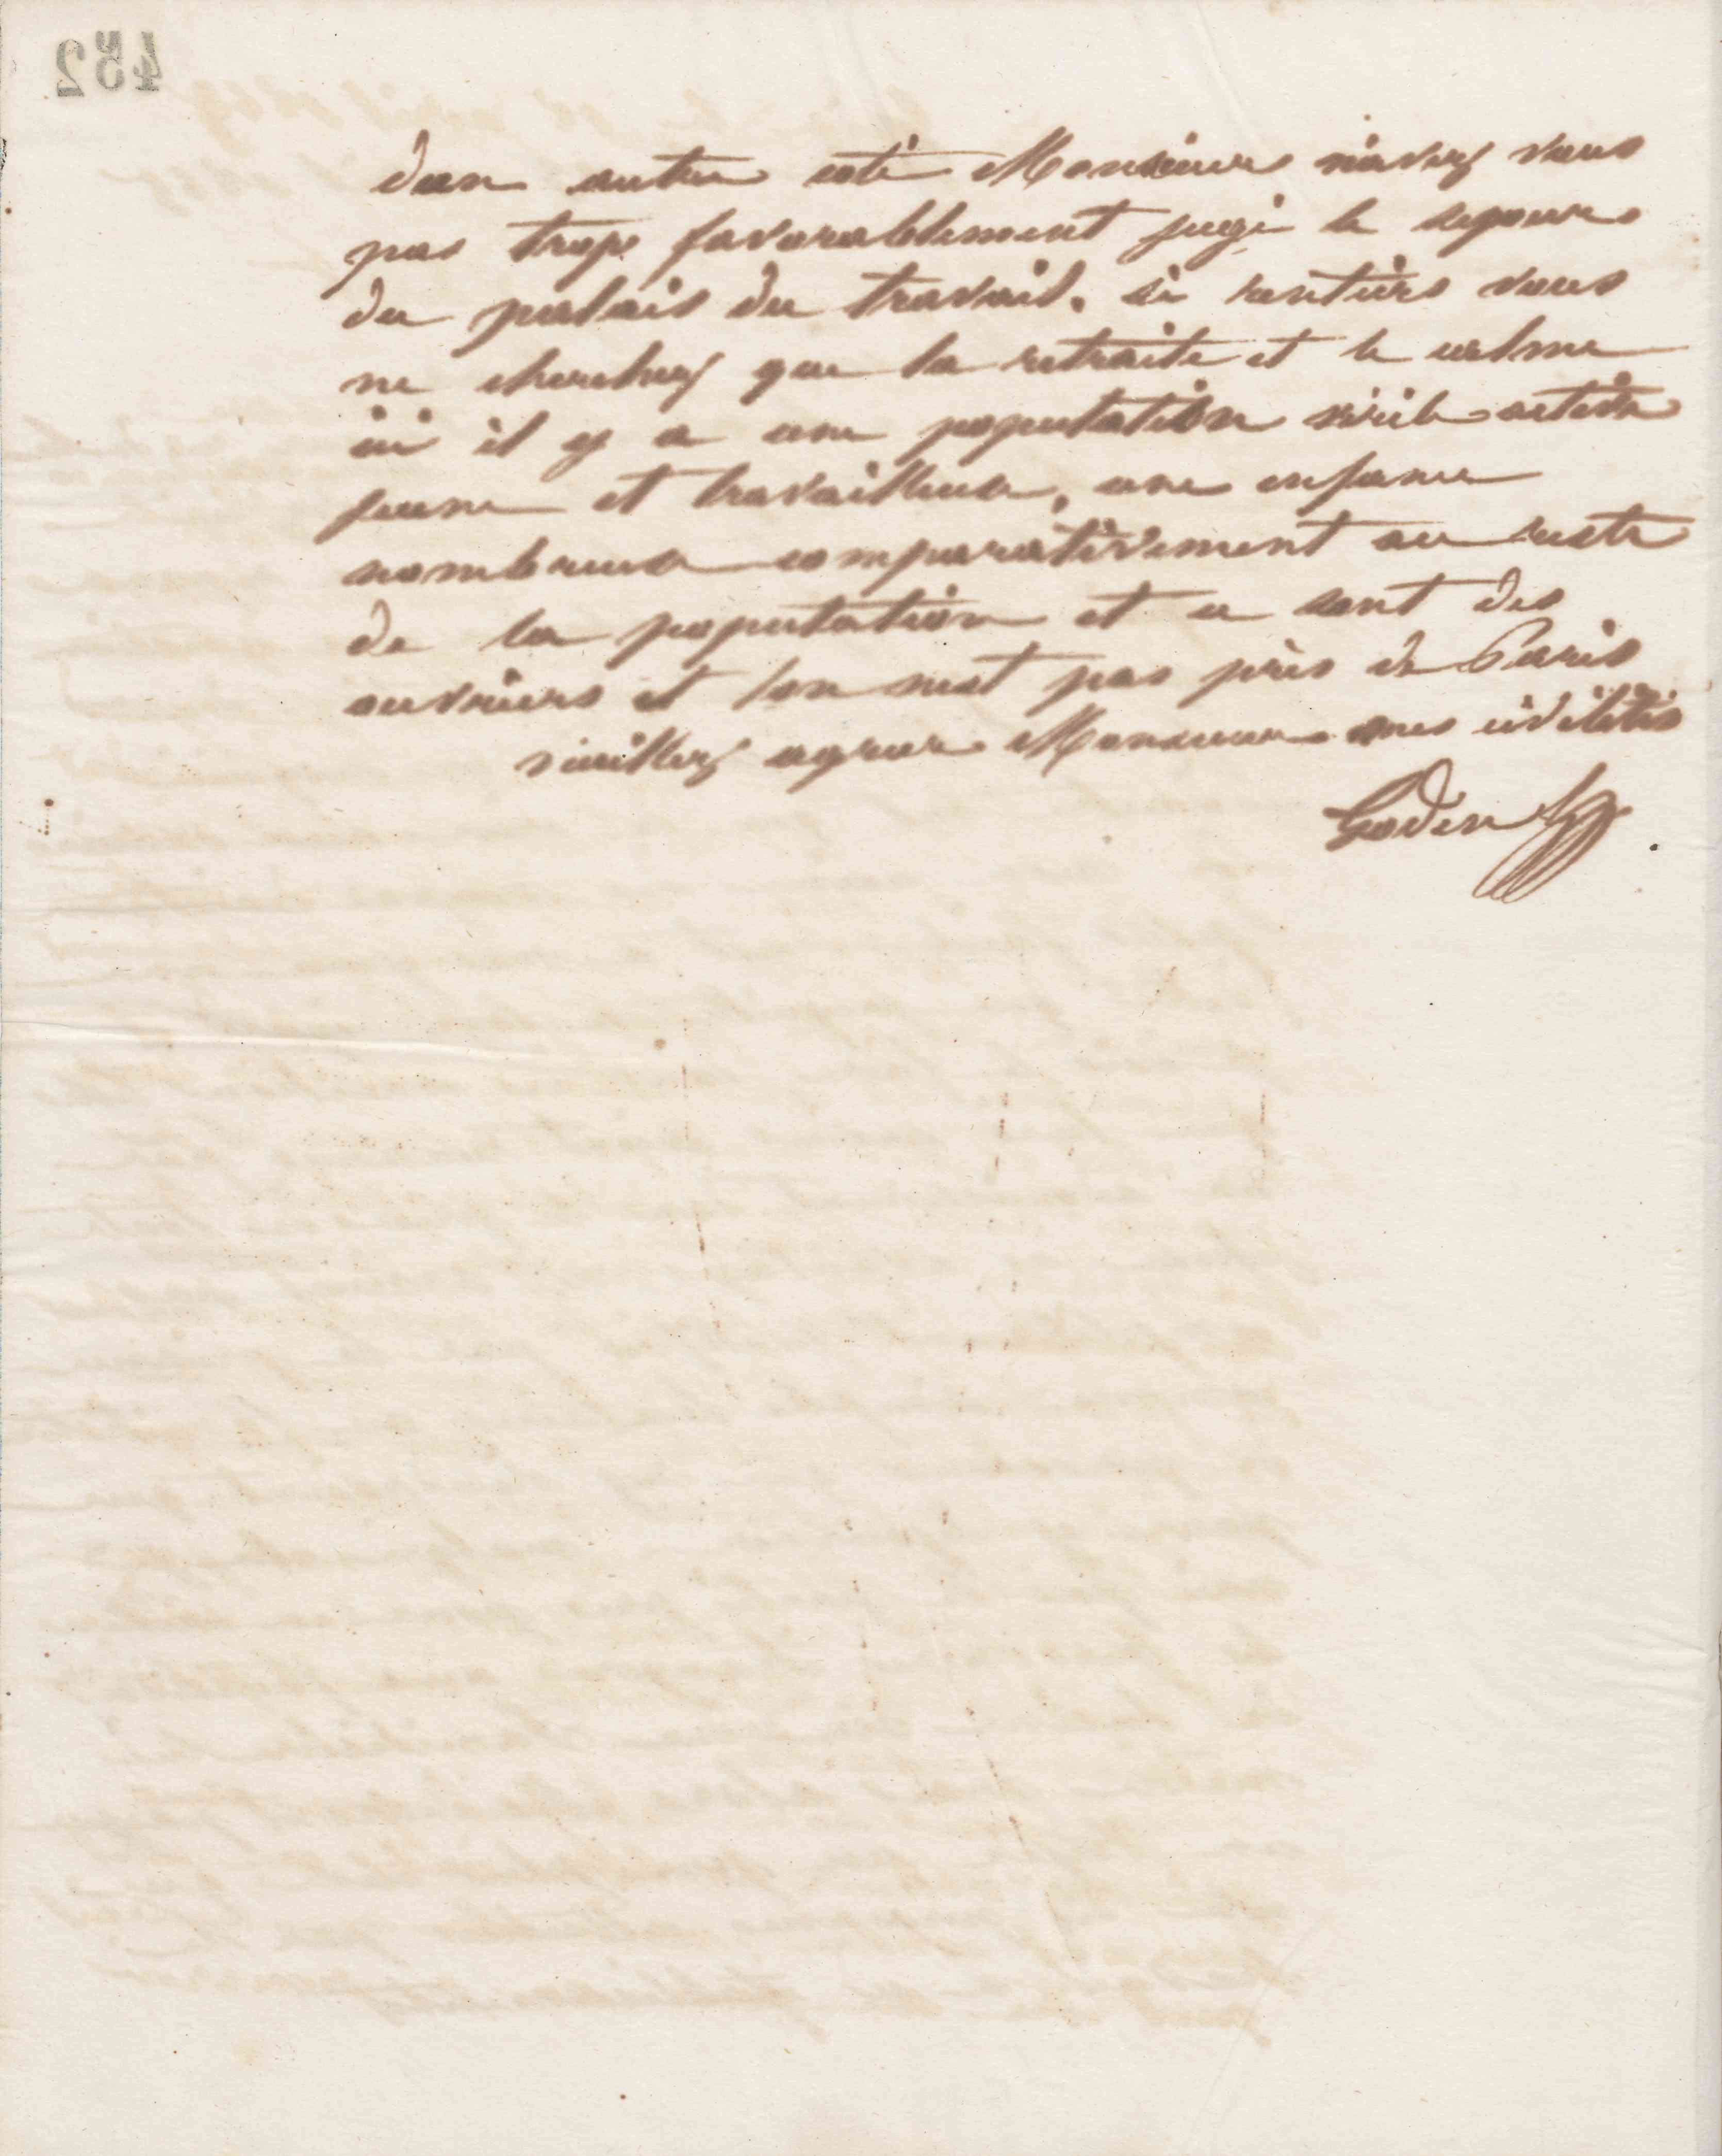 452
d'un autre coté Monsieur n'avez vous
pas trop favorablement jugé le sejour
du palais du travail. si rentiers vous
ne cherchez que la retraite et le calme
ici il y a une population virile active
jeune et travailleuse, une enfance
nombreuse comparativement au reste
de la population et ce sont des
ouvriers et l'on n'est pas près de Paris
veuillez agréer Monsieur mes civilités
Godin